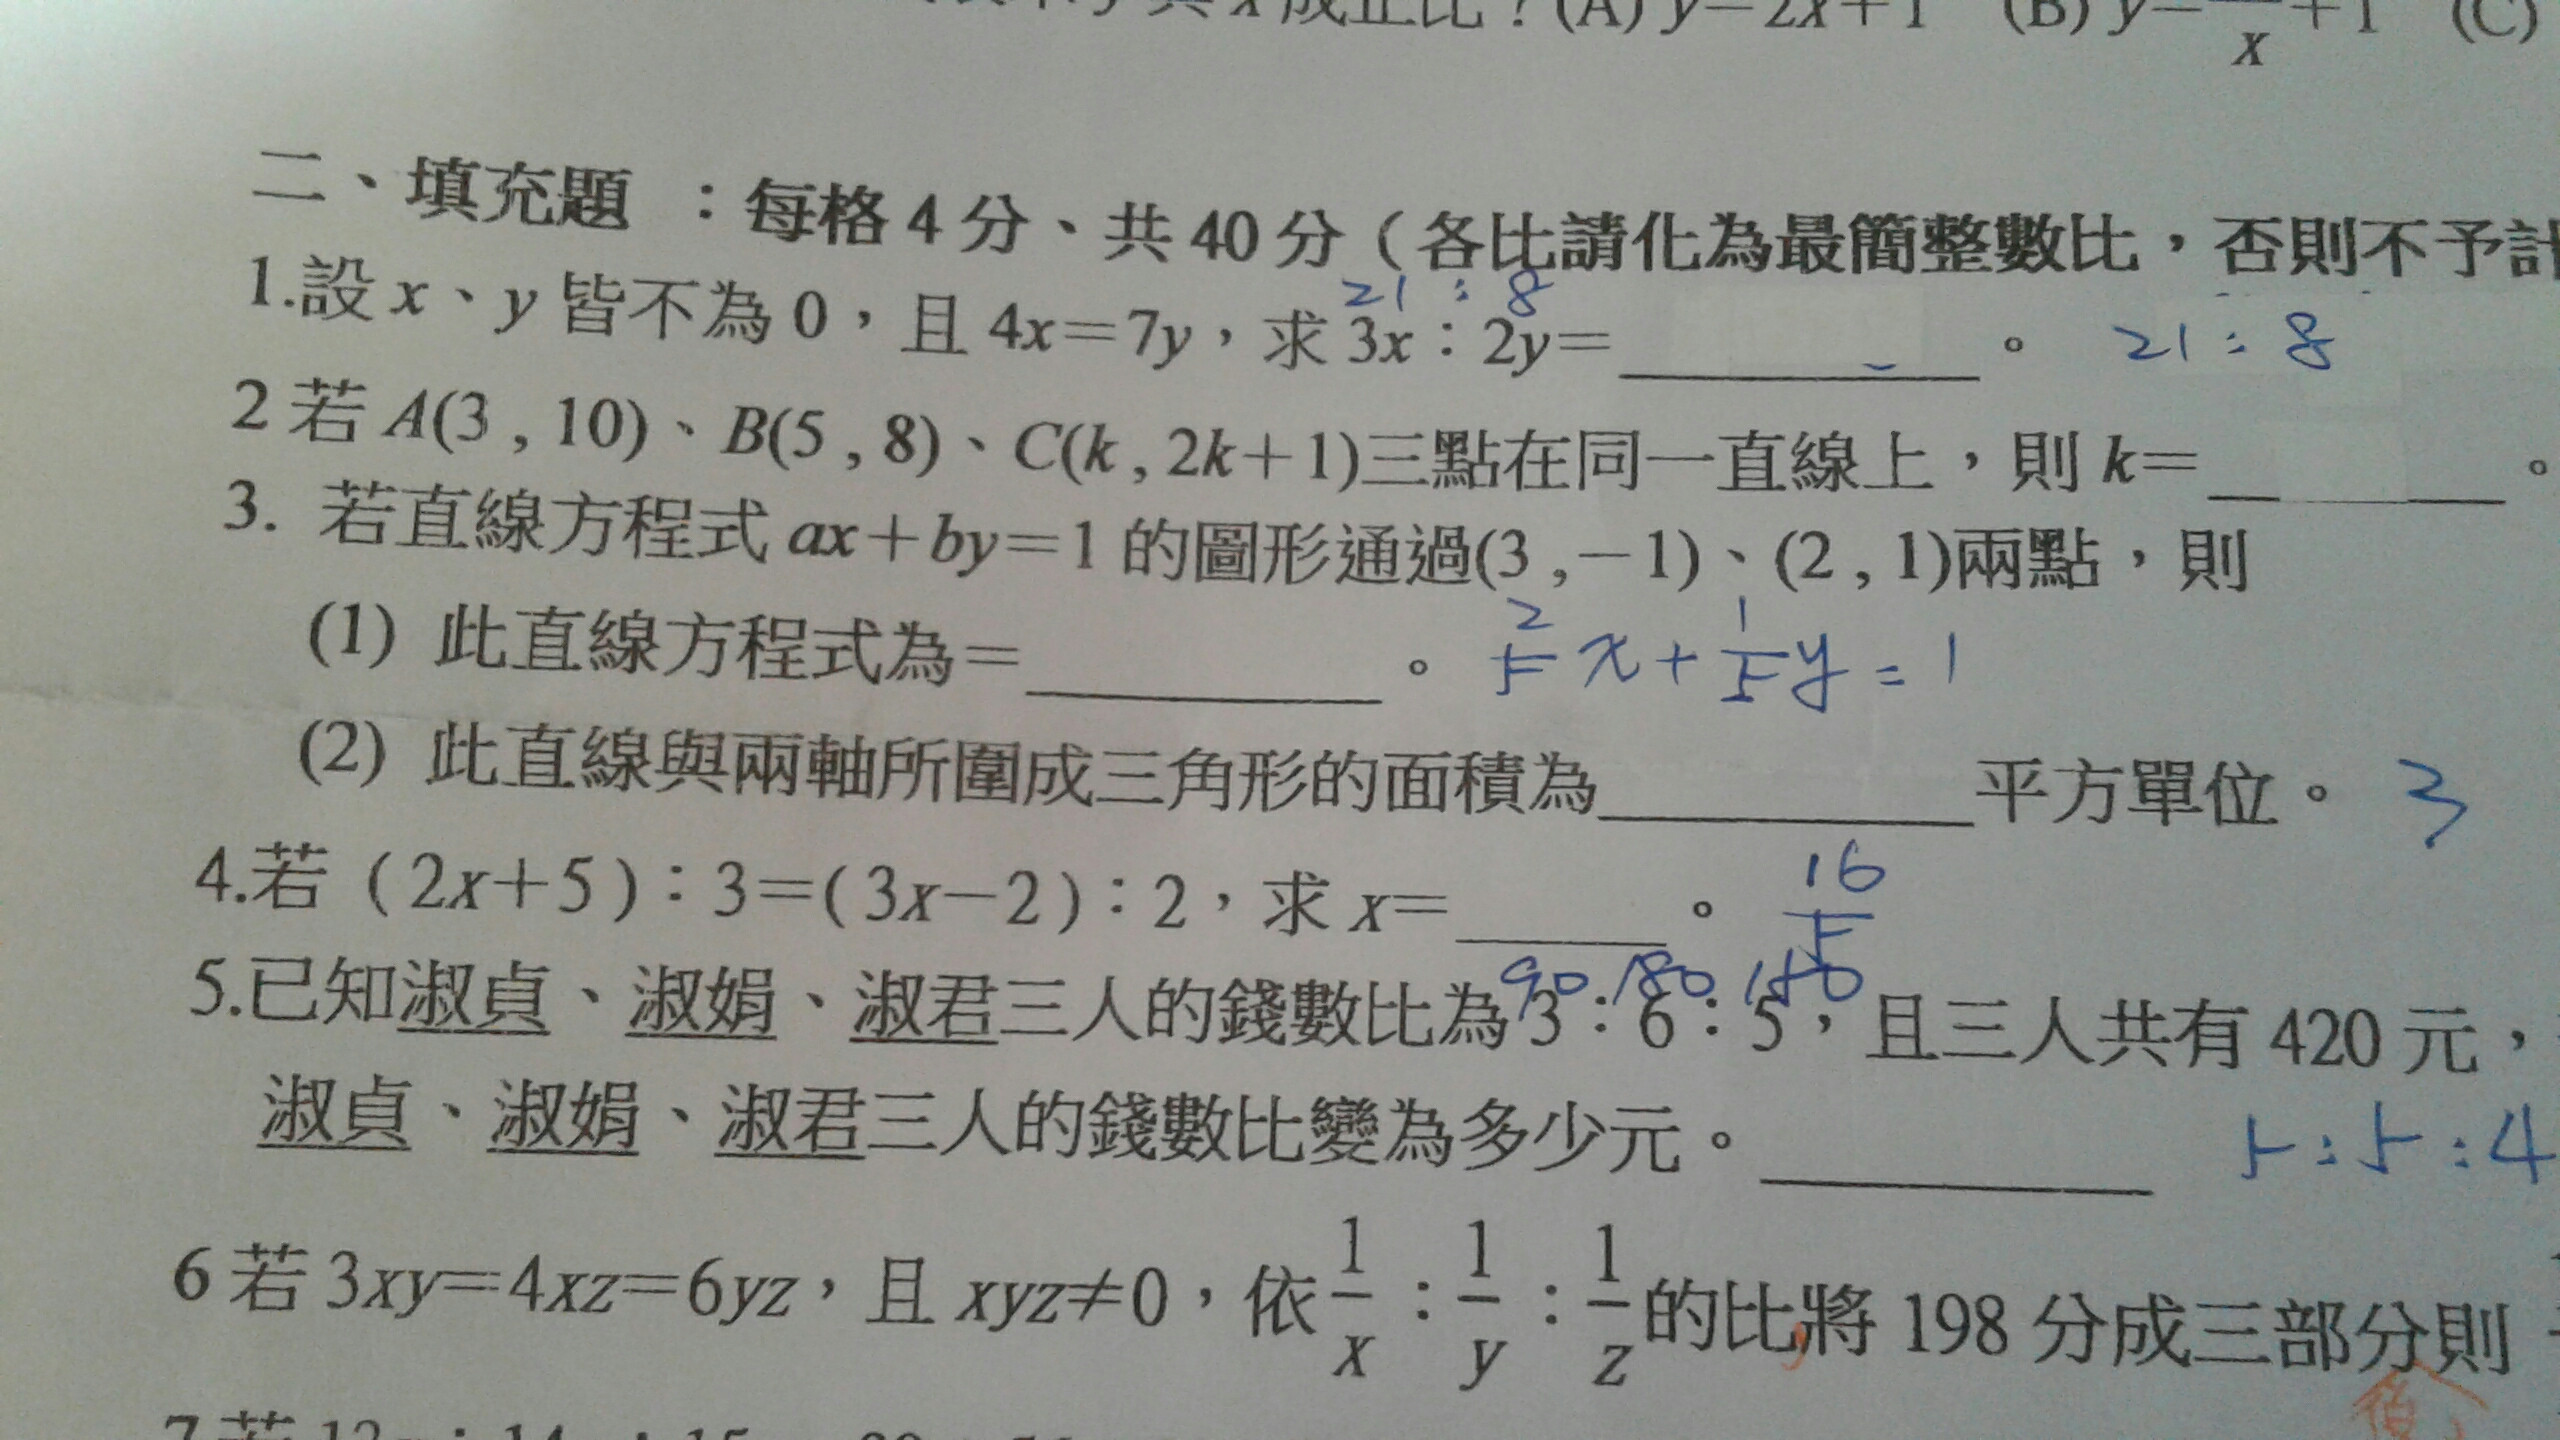 成正比？(A) y＝2x＋1 (B) y＝ /x＋1 (C)
二、填充題 ：每格 4 分、共 40 分（各比請化為最簡整數比，否則不予計
21 : 8
1.設 x、y 皆不為 0，且 4x＝7y，求 3x：2y＝________。 21 : 8
2 若 A(3 , 10)、B(5 , 8)、C(k , 2k＋1)三點在同一直線上，則 k＝________。
3. 若直線方程式 ax＋by＝1 的圖形通過(3 ,－1)、(2 , 1)兩點，則
(1) 此直線方程式為＝________。 2/5 x + 1/5 y = 1
(2) 此直線與兩軸所圍成三角形的面積為________平方單位。 3
4.若（2x＋5）：3＝(3x－2)：2，求 x＝________。 16/5
90 180 150
5.已知淑貞、淑娟、淑君三人的錢數比為 3：6：5，且三人共有 420 元，
淑貞、淑娟、淑君三人的錢數比變為多少元。________ 5 : 5 : 4
6 若 3xy＝4xz＝6yz，且 xyz≠0，依 1/x：1/y：1/z 的比將 198 分成三部分則
7 若